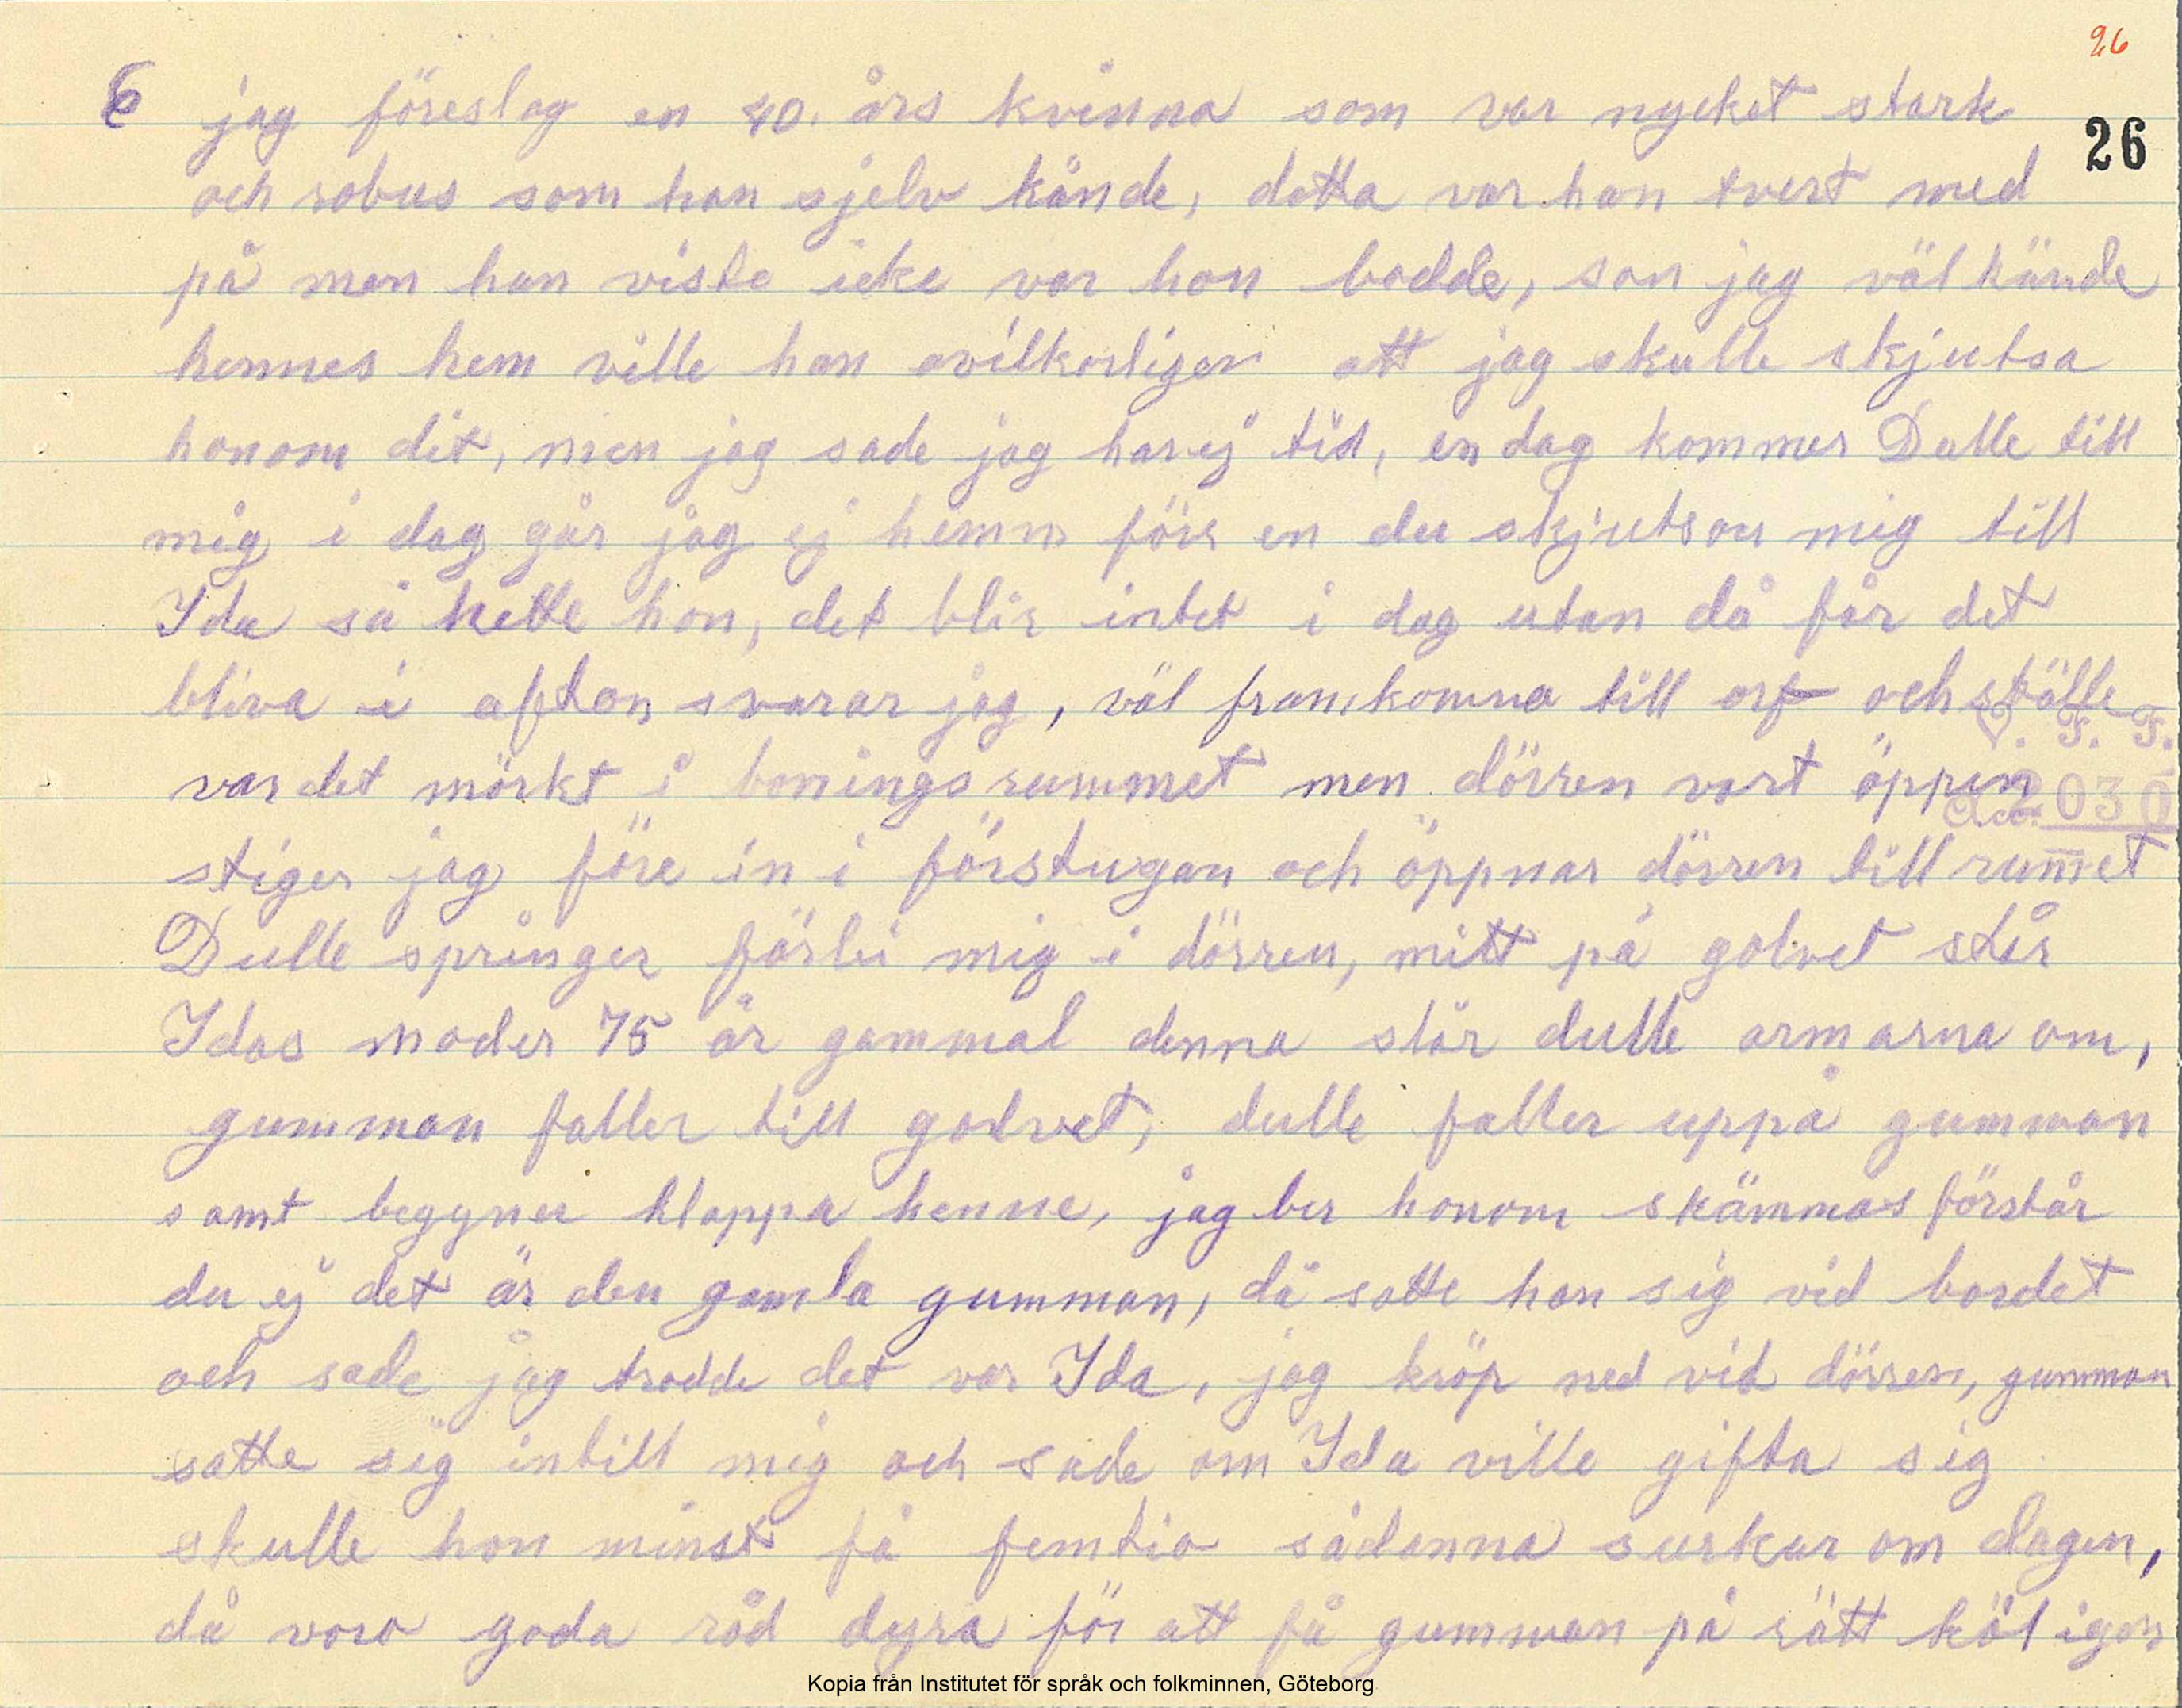 26
6 jag föreslog en 40. års kvinna som var nycket stark
26
och robus som han sjelv kände, detta var han tvert med
på men han viste icke var hon bodde, son jag väl kände
hennes hem ville han ovilkorligen att jag skulle skjutsa
honom dit, men jag sade jag har ej tid, en dag kommer Dulle till
mig i dag går jag ej hemm förr en du skjutsar mig till
Ida så hette hon, det blir intet i dag utan då får det
bliva i afton svarar jag, väl framkomna till ort och ställe
V. F. F.
var det mörkt i boningsrummet men dörren vart öppen
Acc. 2030
stiger jag före in i förstugan och öppnar dörren till rum̅et
Dulle springer förbi mig i dörren, mitt på golvet står
Idas moder 75 år gammal denna slår dulle armarna om,
gumman faller till golvet, dulle faller uppå gumman
samt beggyner klappa henne, jag ber honom skämmas förstår
du ej det är den gamla gumman, då satte han sig vid bordet
och sade jag trodde det var Ida, jag kröp ned vid dörren, gumman
satte sig intill mig och sade om Ida ville gifta sig
skulle hon minst få femtio sådanna surkar om dagen,
då voro goda råd dyra för att få gumman på rätt köl igen
Kopia från Institutet för språk och folkminnen, Göteborg